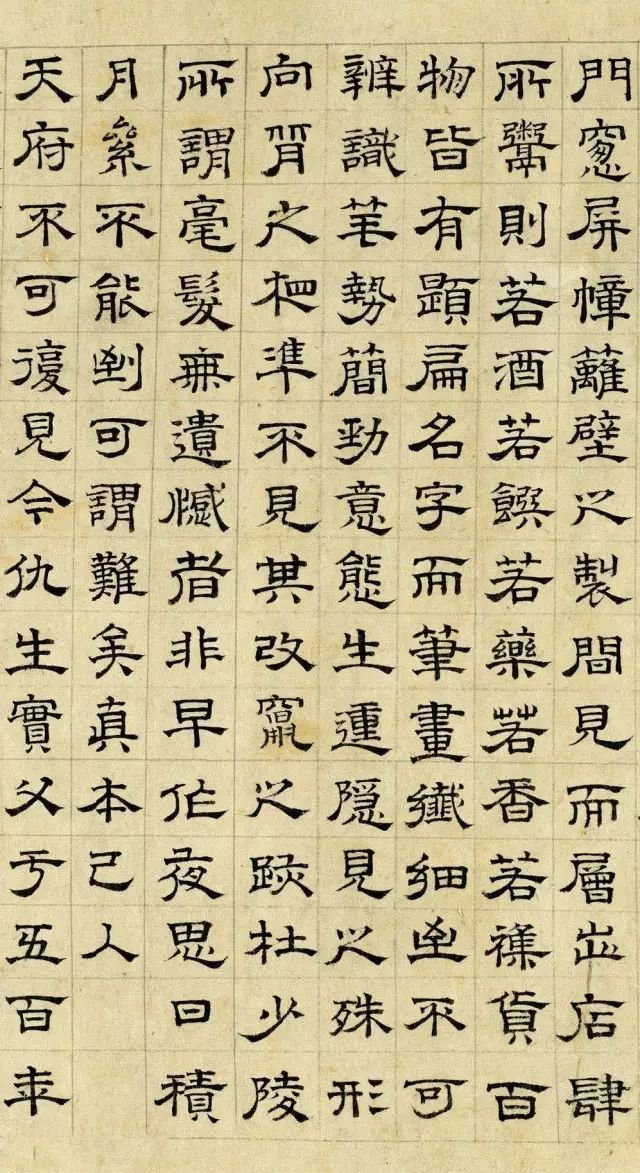 門窻屏幛蘺壁之製間見而層出店肆
所鬻則若酒若饌若藥若香若襍貨百
物皆有題扁名字而筆畫纖細至不可
辨識笔勢簡勁意態生運隱見之殊形
向背之相準不見其改竄之跡杜少陵
所謂毫髮無遺憾者非早作夜思日積
月絫不能到可謂難矣真本已入
天府不可復見今仇生實父亏五百年